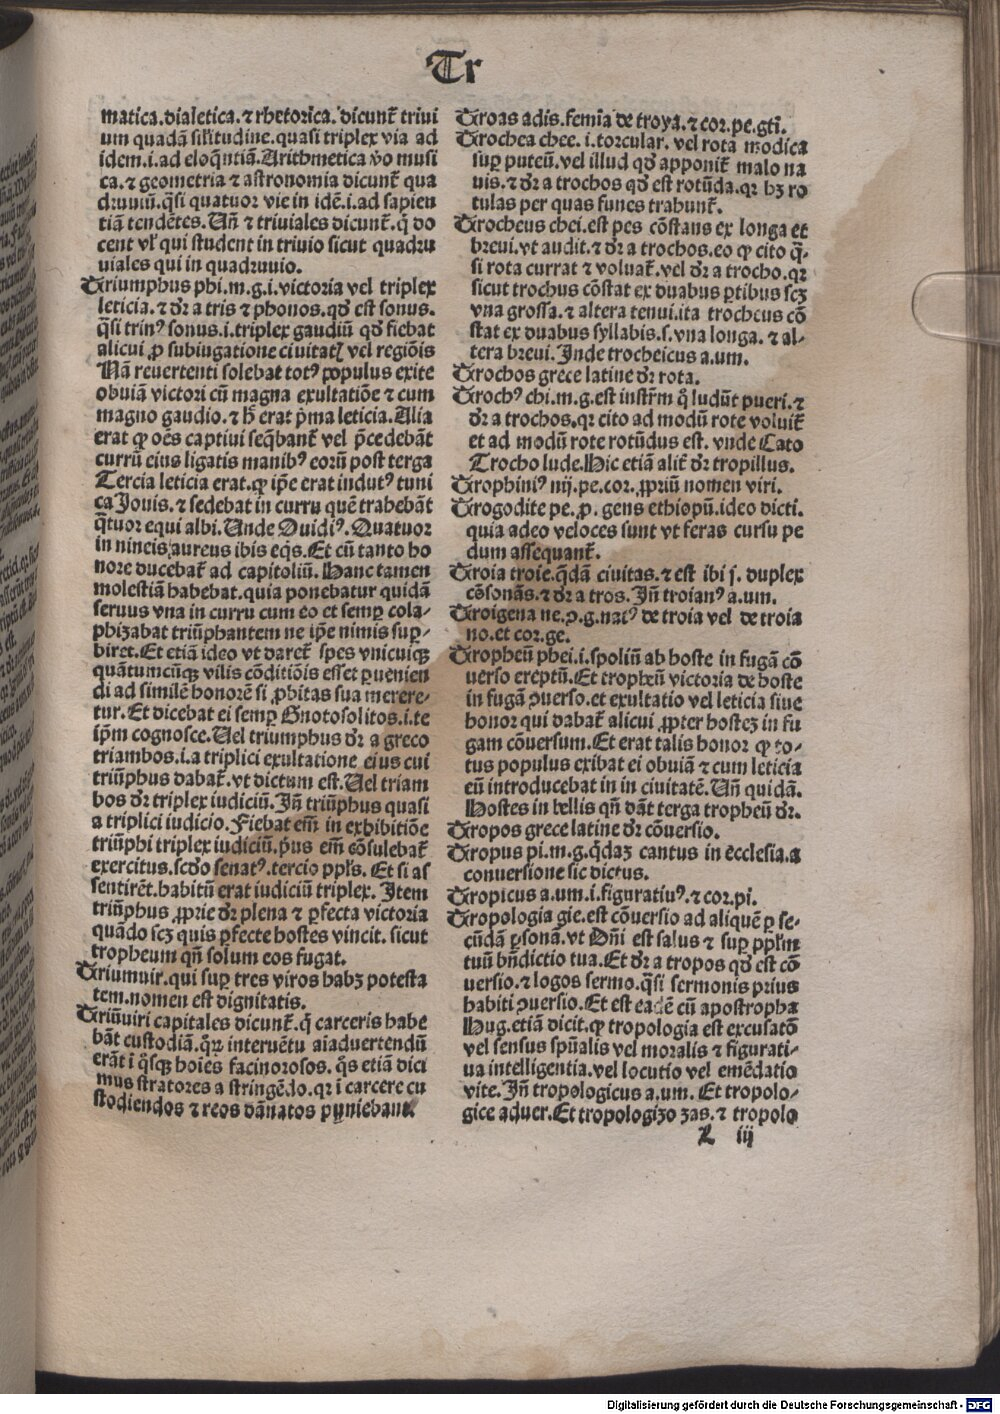 Tr
matica.dialetica.⁊ rhetorica. dicunt̃ triui
um quadã sil̃itudine.quasi triplex via ad
idem.i.ad eloq̃ntiã.Arithmetica ṽo musi
ca.⁊ geometria ⁊ astronomia dicunt̃ qua
druuiũ.q̃si quatuor vie in idẽ.i.ad sapien
tiã tendẽtes.Uñ ⁊ triuiales dicunt̃.q̃ do
cent vl̃ qui student in triuio sicut quadru
uiales qui in quadruuio.
Triumphus phi.m.g.i.victoria vel triplex
leticia.⁊ dr̃ a tris ⁊ phonos.qd̃ est sonus.
q̃si trinꝰ sonus.i.triplex gaudiũ qd̃ fiebat
alicui ꝓ subiugatione ciuitatꝭ vel regiõis
Nã reuertenti solebat totꝰ ppopulus exire
obuiã victori cũ magna exultatiõe ⁊ cum
magno gaudio.⁊ h̃ erat p̃ma leticia.Alia
erat ꝙ oẽs captiui seq̃bant̃ vel p̃cedebãt
currũ eius ligatis manibꝰ eorũ post terga
Tercia leticia erat.ꝙ ip̃e erat indutꝰ tuni
ca Jouis.⁊ sedebat in curru quẽ trahebãt
q̃tuor equi albi.Unde Ouidiꝰ.Quatuor
in nineis aureus ibis eq̃s.Et cũ tanto ho
nore ducebat̃ ad capitoliũ.Hanc tamen
molestiã habebat.quia ponebatur quidã
seruus vna in curru cum eo et semꝑ cola-
phizabat triũphantem ne ip̃e nimis suꝑ-
biret.Et etiã ideo vt daret̃ spes vnicuiqꝫ
quãtumcũqꝫ vilis cõditiõis esset ꝑuenien
di ad similẽ honorẽ si ꝓbitas sua merere-
tur.Et dicebat ei semꝑ Gnotosolitos.i.te
ip̃m cognosce.Uel triumphus dr̃ a greco
triambos.i.a triplici exultatione eius cui
triũphus dabat̃.vt dictum est.Uel triam
bos dr̃ triplex iudiciũ.Jñ triũphus quasi
a triplici iudicio.Fiebat em̃ in exhibitiõe
triũphi triplex iudiciũ.p̃us em̃ cõsulebat̃
exercitus.scd̃o senatꝰ.tercio ppl̃s.Et si as
sentirẽt.habitũ erat iudiciũ triplex.Item
triũphus ꝓprie dr̃ plena ⁊ ꝑfecta victoria
quãdo scꝫ quis ꝑfecte hostes vincit.sicut
tropheum qñ solum eos fugat.
Triumuir.qui suꝑ tres viros habꝫ potesta
tem.nomen est dignitatis.
Triũuiri capitales dicunt̃.q̃ carceris habe
bãt custodiã.q̃ꝝ interuẽtu aiaduertendũ
erãt ĩ q̃sqꝫ hoĩes facinorosos.q̃s etiã dici
mus stratores a stringẽdo.qr ĩ carcere cu
stodiendos ⁊ reos dãnatos puniebant.
Troas adis.femĩa de troya.⁊ cor.pe.gti.
Trochea chee.i.torcular.vel rota modica
suꝑ puteũ.vel illud qd̃ apponit̃ malo na
uis.⁊ dr̃ a trochos qd̃ est rotũda.qr hꝫ ro
tulas per quas funes trahunt̃.
Trocheus chei.est pes cõstans ex longa et
breui.vt audit.⁊ dr̃ a trochos.eo ꝙ cito q̃-
si rota currat ⁊ voluat̃.vel dr̃ a trocho.qr
sicut trochus cõstat ex duabus ꝑtibus scꝫ
vna grossa.⁊ altera tenui.ita trocheus cõ
stat ex duabus syllabis.s.vna longa.⁊ al-
tera breui.Inde trocheicus a.um.
Trochos grece latine dr̃ rota.
Trochꝰ chi.m.g.est instr̃m q̃ ludũt pueri.⁊
dr̃ a trochos.qr cito ad modũ rote voluit̃
et ad modũ rote rotũdus est.vnde Cato
Trocho lude.Hic etiã alit̃ dr̃ tropillus.
Trophiniꝰ nij.pe.cor.ꝓpriũ nomen viri.
Trogodite pe.ꝓ.gens ethiopũ.ideo dicti.
quia adeo veloces sunt vt feras cursu pe
dum assequant̃.
Troia troie.q̃dã ciuitas.⁊ est ibi j.duplex
cõsonãs.⁊ dr̃ a tros.Jñ troianꝰ a.um.
Troigena ne.ꝯ.g.natꝰ de troia vel de troia
no.et cor.ge.
Tropheũ phei.i.spoliũ ab hoste in fugã cõ
uerso ereptũ.Et tropheũ victoria de hoste
in fugã ꝯuerso.et exultatio vel leticia siue
honor qui dabat̃ alicui ꝓpter hostez in fu
gam cõuersum.Et erat talis honor ꝙ to-
tus populus exibat ei obuiã ⁊ cum leticia
eũ introducebat in in ciuitatẽ.Uñ quidã.
Hostes in bellis qñ dãt terga tropheũ dr̃.
Tropos grece latine dr̃ cõuersio.
Tropus pi.m.g.q̃daz cantus in ecclesia.a
conuersione sic dictus.
Tropicus a.um.i.figuratiuꝰ.⁊ cor.pi.
Tropologia gie.est cõuersio ad aliquẽ ꝑ se-
cũdã ꝑsonã.vt Dñi est salus ⁊ suꝑ ppl̃m
tuũ bñdictio tua.Et dr̃ a tropos qd̃ est cõ
uersio.⁊ logos sermo.q̃si sermonis prius
habiti ꝯuersio.Et est eadẽ cũ apostropha
Hug.etiã dicit.ꝙ tropologia est excusatõ
vel sensus spũalis vel moralis ⁊ figurati-
ua intelligentia.vel locutio vel emẽdatio
vite.Jñ tropologicus a.um.Et tropolo-
gice aduer.Et tropologizo zas.⁊ tropolo
iij
Digitalisierung gefördert durch die Deutsche Forschungsgemeinschaft - DFG